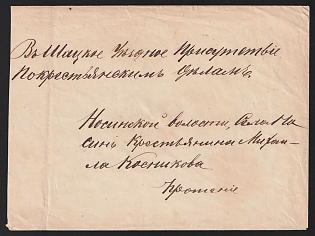 Въ Шацкое Уѣздное Присутствіе
По крестьянскимъ дѣламъ,
Носинской волости, Села На
синъ Крестьянина Михаи-
ла Косникова
Прошеніе